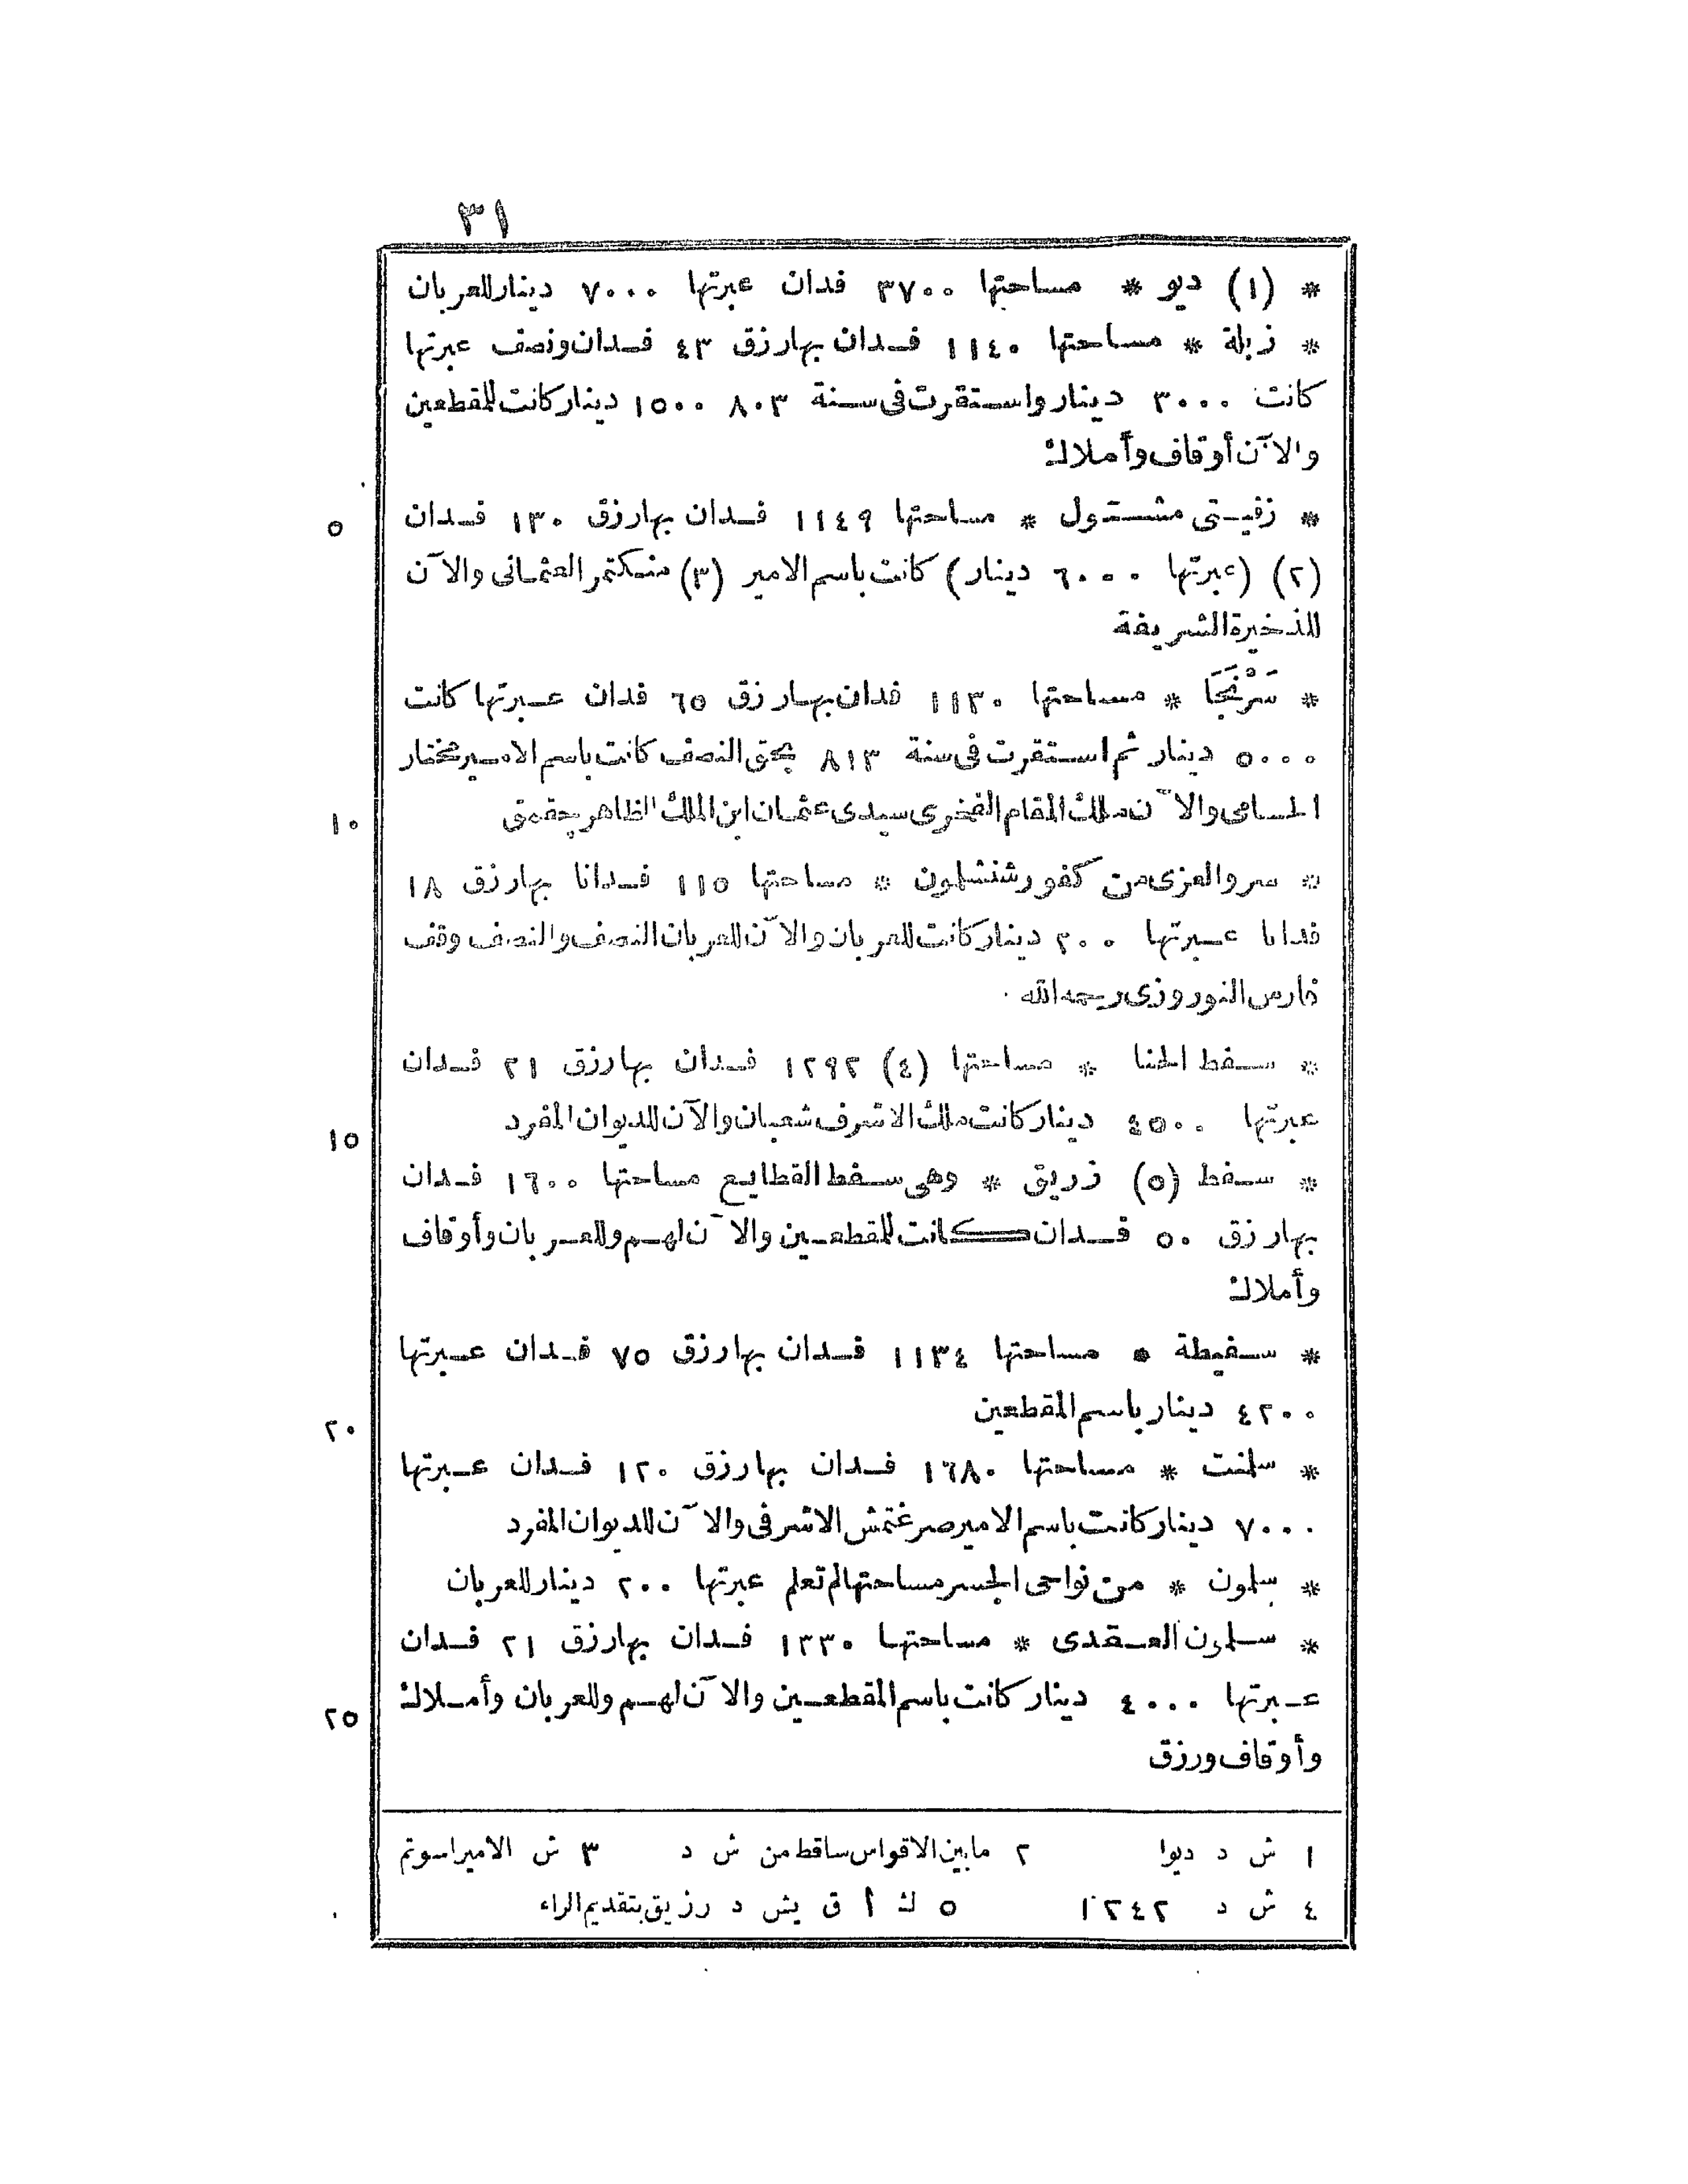 ٣١
* (١) ديو * مساحتها ٣٧٠٠ فدان عبرتها ٧٠٠٠ دينار للعربان
* زبلة * مساحتها ١١٤٠ فدان بها رزق ٤٣ فدان ونصف عبرتها
كانت ٣٠٠٠ دينار واستقرت فى سنة ٨٠٣ ١٥٠٠ دينار كانت للمقطعين
والآن أوقاف وأملاك
* زفيتى مشتول * مساحتها ١١٤٩ فدان بها رزق ١٣٠ فدان
٥
(٢) (عبرتها ٦٠٠٠ دينار) كانت باسم الامير (٣) منكتمر العثمانى والآن
للذخيرة الشريفة
* سَرْنَجَا * مساحتها ١١٣٠ فدان بها رزق ٦٥ فدان عبرتها كانت
٥٠٠٠ دينار ثم استقرت فى سنة ٨١٣ بحق النصف كانت باسم الامير مختار
الحسامى والآن ملك المقام الفخرى سيدى عثمان ابن الملك الظاهر جقمق
١٠
* سرو العزى من كفور شنشلمون * مساحتها ١١٥ فدانا بها رزق ١٨
فدانا عبرتها ٣٠٠ دينار كانت للعربان والآن للعربان النصف والنصف وقف
فارس النوروزى رحمه الله
* سفط الحنا * مساحتها (٤) ١٢٩٢ فدان بها رزق ٢١ فدان
عبرتها ٤٥٠٠ دينار كانت ملك الاشرف شعبان والآن للديوان المفرد
١٥
* سفط (٥) زريق * وهى سفط القطايع مساحتها ١٦٠٠ فدان
بها رزق ٥٠ فدان كانت للمقطعين والآن لهم وللعربان وأوقاف
وأملاك
* سفيطة * مساحتها ١١٣٤ فدان بها رزق ٧٥ فدان عبرتها
٤٢٠٠ دينار باسم المقطعين
٢٠
* سلنت * مساحتها ١٦٨٠ فدان بها رزق ١٢٠ فدان عبرتها
٧٠٠٠ دينار كانت باسم الامير صرغتمش الاشرفى والآن للديوان المفرد
* سلمون * من نواحى الجسر مساحتها لم تعلم عبرتها ٢٠٠ دينار للعربان
* سلمون العقدى * مساحتها ١٣٣٠ فدان بها رزق ٢١ فدان
عبرتها ٤٠٠٠ دينار كانت باسم المقطعين والآن لهم وللعربان وأملاك
٢٥
وأوقاف ورزق
١ ش د ديوا ٢ ما بين الاقواس ساقط من ش د ٣ ش الامير اسوتم
٤ ش د ١٢٤٢ ٥ ك أ ق يش د رزيق بتقديم الراء